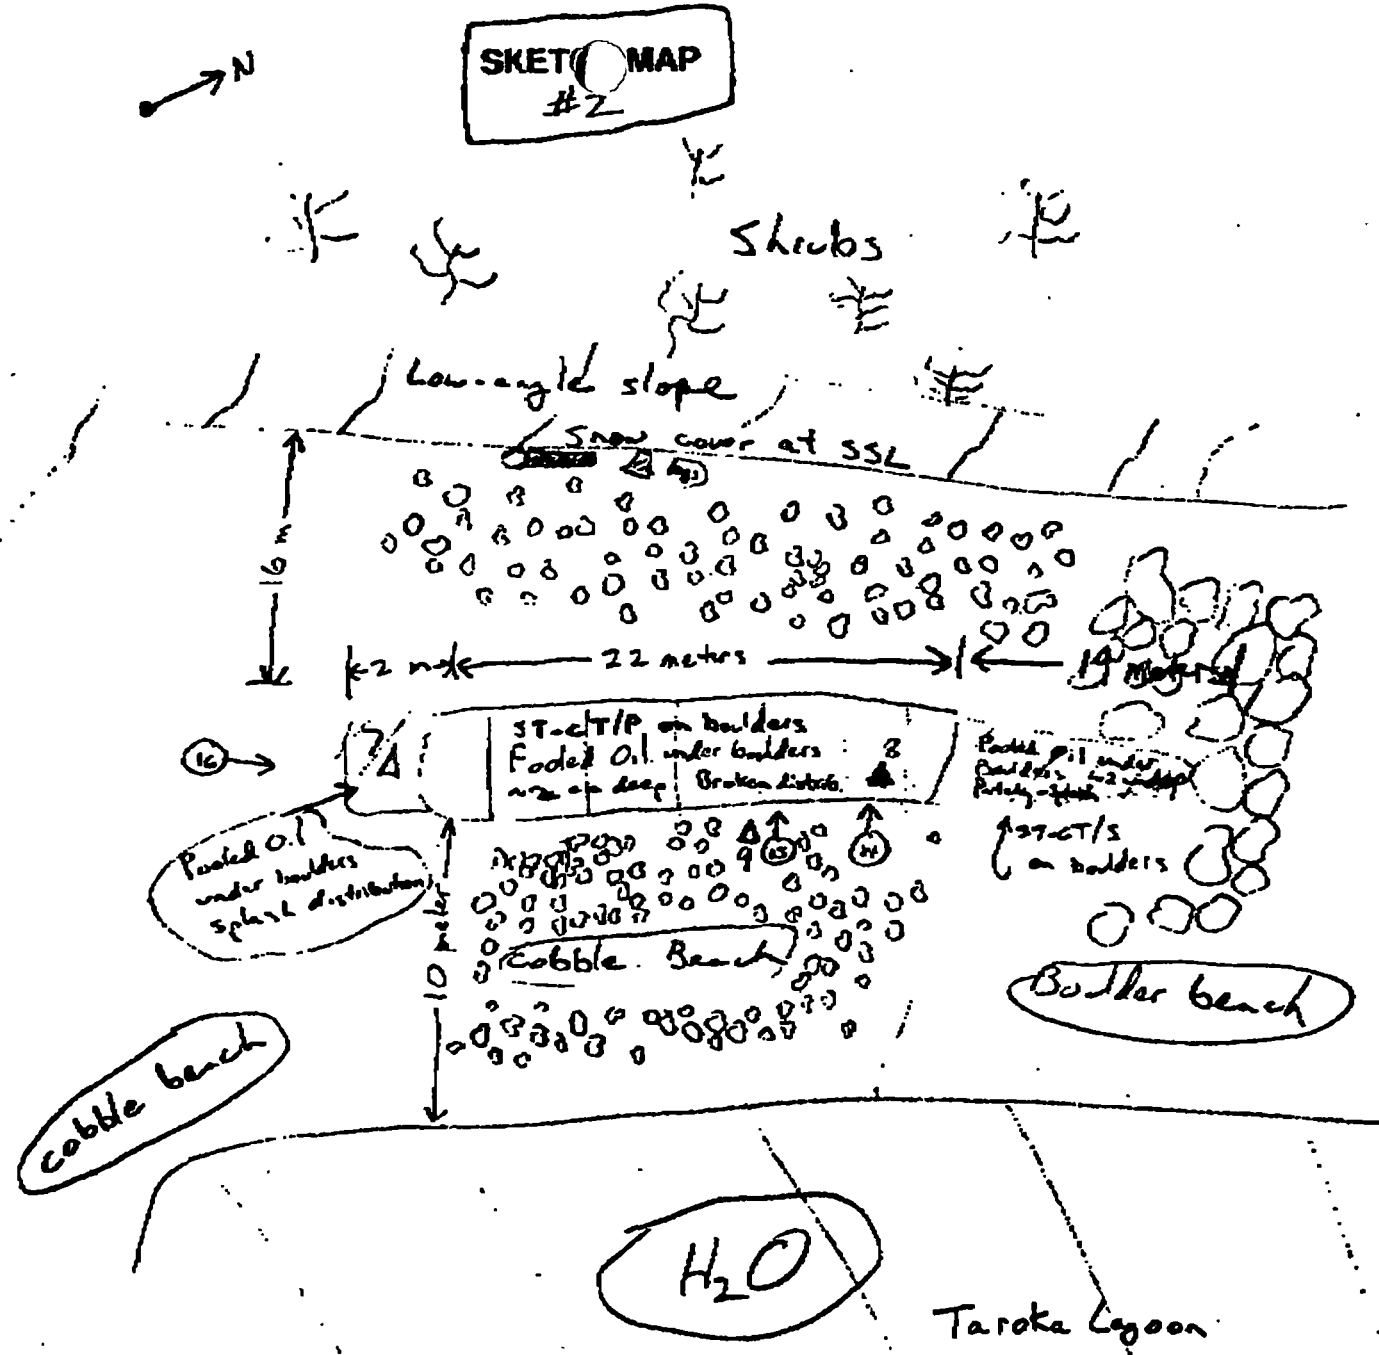 N
SKETCH MAP
#2
Shrubs
Low-angle slope
Snow cover at SSL
16 m
2 m
22 meters
19 meters
16
7
ST-CT/P on boulders
Pooled Oil under boulders
~2 cm deep Broken distrib.
8
Pooled oil under
Boulders
ST-CT/S
on boulders
9
15
14
Pooled Oil
under boulders
splash distribution
10 meter
Cobble Beach
Boulder beach
cobble beach
H2O
Taroka Lagoon